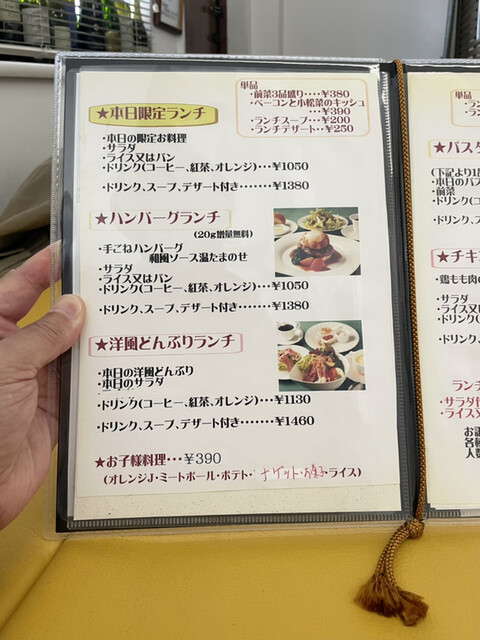 単品
・前菜3品盛り・・・¥380
・ベーコンと小松菜のキッシュ
・・・¥390
・ランチスープ・・・¥200
・ランチデザート・・¥250
★本日限定ランチ
・本日の限定お料理
・サラダ
・ライス又はパン
・ドリンク(コーヒー、紅茶、オレンジ)・・・¥1050
・ドリンク、スープ、デザート付き・・・・・・¥1380
★ハンバーグランチ
(20g増量無料)
・手ごねハンバーグ
和風ソース温たまのせ
・サラダ
・ライス又はパン
・ドリンク(コーヒー、紅茶、オレンジ)・・・¥1050
・ドリンク、スープ、デザート付き・・・・・・¥1380
★洋風どんぶりランチ
・本日の洋風どんぶり
・本日のサラダ
・ドリンク(コーヒー、紅茶、オレンジ)・・・¥1130
・ドリンク、スープ、デザート付き・・・・・・・¥1460
★お子様料理・・・¥390
(オレンジJ・ミートボール・ポテト・ナゲット・お菓子・ライス)
・ラン
・ラン
★パスタ
(下記より1
・本日のパス
・前菜
・ドリンク(コ
・ドリンク、ス
★チキン
・鶏もも肉の
・サラダ
・ライス又
・ドリンク(
・ドリンク、ス
ランチ
・サラダ付
・ライス又
お話
各種
人数